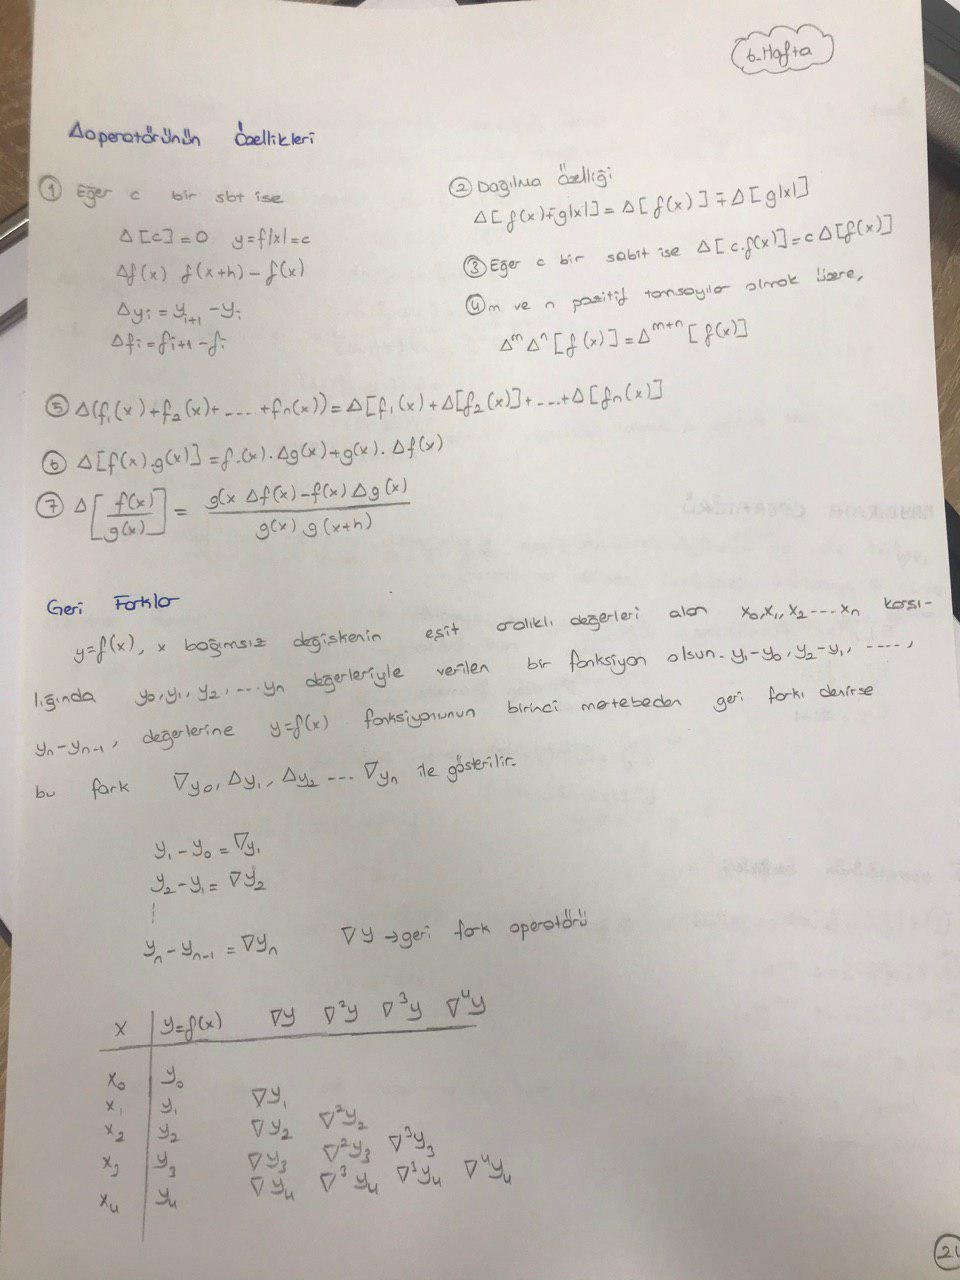 6.Hafta
Δoperatörünün Özellikleri
① Eğer c bir sbt ise
Δ[c]=0 y=f(x)=c
Δf(x) f(x+h)-f(x)
Δyᵢ=yᵢ₊₁-yᵢ
Δfᵢ=fᵢ₊₁-fᵢ
② Dağılma Özelliği
Δ[f(x)∓g(x)]=Δ[f(x)]∓Δ[g(x)]
③ Eğer c bir sabit ise Δ[c.f(x)]=cΔ[f(x)]
④ m ve n pozitif tamsayılar olmak üzere,
ΔᵐΔⁿ[f(x)]=Δᵐ⁺ⁿ[f(x)]
⑤ Δ(f₁(x)+f₂(x)+....+fₙ(x))=Δ[f₁(x)+Δ[f₂(x)]+...+Δ[fₙ(x)]
⑥ Δ[f(x).g(x)]=f.(x).Δg(x)+g(x).Δf(x)
⑦ Δ[f(x)/g(x)] = g(x Δf(x)-f(x)Δg(x) / g(x) g(x+h)
Geri Farklar
y=f(x), x bağımsız değişkenin eşit aralıklı değerleri alan x₀,x₁,x₂....xₙ karşı-
lığında y₀,y₁,y₂,...yₙ değerleriyle verilen bir fonksiyon olsun. y₁-y₀,y₂-y₁,....,
yₙ-yₙ₋₁, değerlerine y=f(x) fonksiyonunun birinci mertebeden geri farkı denirse
bu fark ∇y₀,Δy₁,Δy₂....∇yₙ ile gösterilir.
y₁-y₀=∇y₁
y₂-y₁=∇y₂
yₙ-yₙ₋₁=∇yₙ ∇y→geri fark operatörü
x y=f(x) ∇y ∇²y ∇³y ∇⁴y
x₀ y₀
x₁ y₁ ∇y₁
x₂ y₂ ∇y₂ ∇²y₂
x₃ y₃ ∇y₃ ∇²y₃ ∇³y₃
x₄ y₄ ∇y₄ ∇³y₄ ∇³y₄ ∇⁴y₄